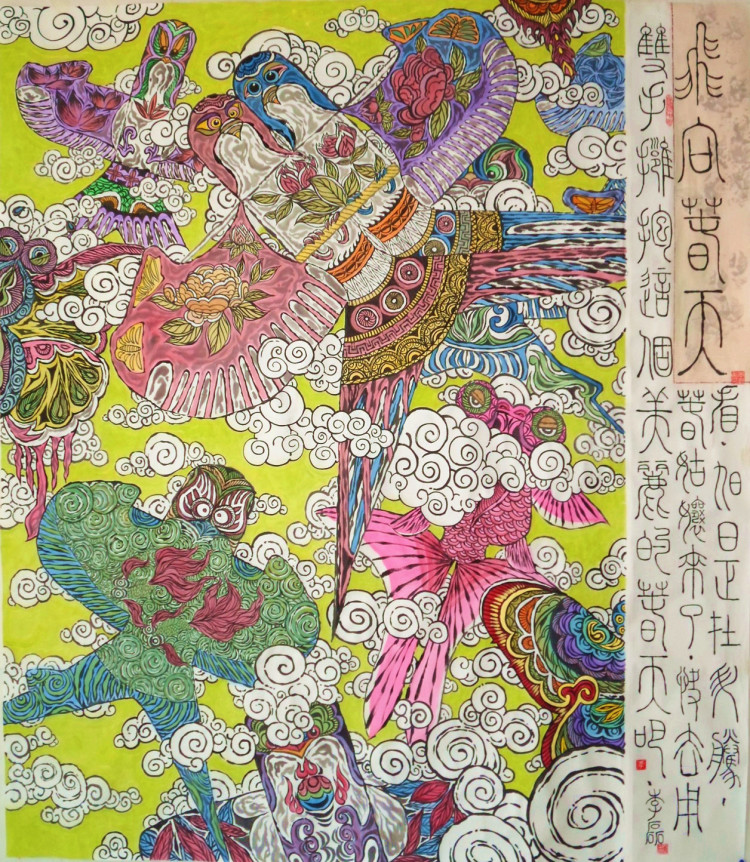 飛向春天
看，旭日正在升騰，
春姑娘來了，快去用
雙手擁抱這個美麗的春天吧，李磊